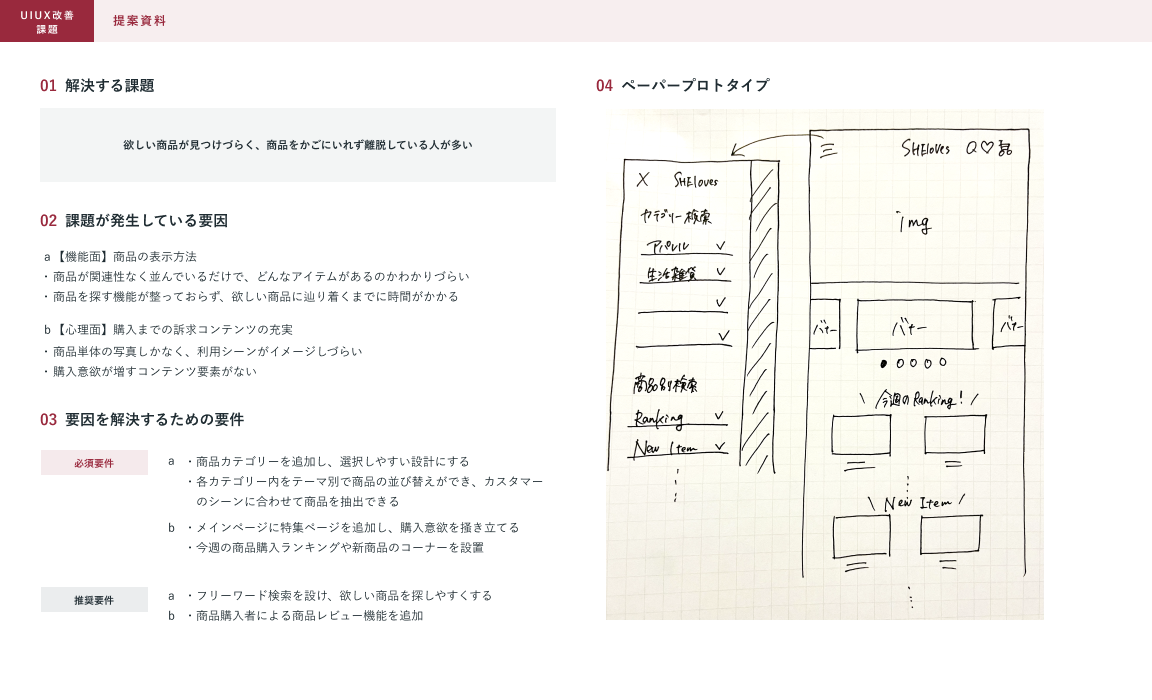 UIUX改善
課題
提案資料
01 解決する課題
欲しい商品が見つけづらく、商品をかごにいれず離脱している人が多い
02 課題が発生している要因
a【機能面】商品の表示方法
・商品が関連性なく並んでいるだけで、どんなアイテムがあるのかわかりづらい
・商品を探す機能が整っておらず、欲しい商品に辿り着くまでに時間がかかる
b【心理面】購入までの訴求コンテンツの充実
・商品単体の写真しかなく、利用シーンがイメージしづらい
・購入意欲が増すコンテンツ要素がない
03 要因を解決するための要件
必須要件
a ・商品カテゴリーを追加し、選択しやすい設計にする
・各カテゴリー内をテーマ別で商品の並び替えができ、カスタマー
のシーンに合わせて商品を抽出できる
b ・メインページに特集ページを追加し、購入意欲を掻き立てる
・今週の商品購入ランキングや新商品のコーナーを設置
推奨要件
a ・フリーワード検索を設け、欲しい商品を探しやすくする
b ・商品購入者による商品レビュー機能を追加
04 ペーパープロトタイプ
X SHEloves
カテゴリー検索
アパレル
生活雑貨
商品別検索
Ranking
New Item
SHEloves
img
バナー
バナー
バナー
\ 今週のRanking! /
\ New Item /